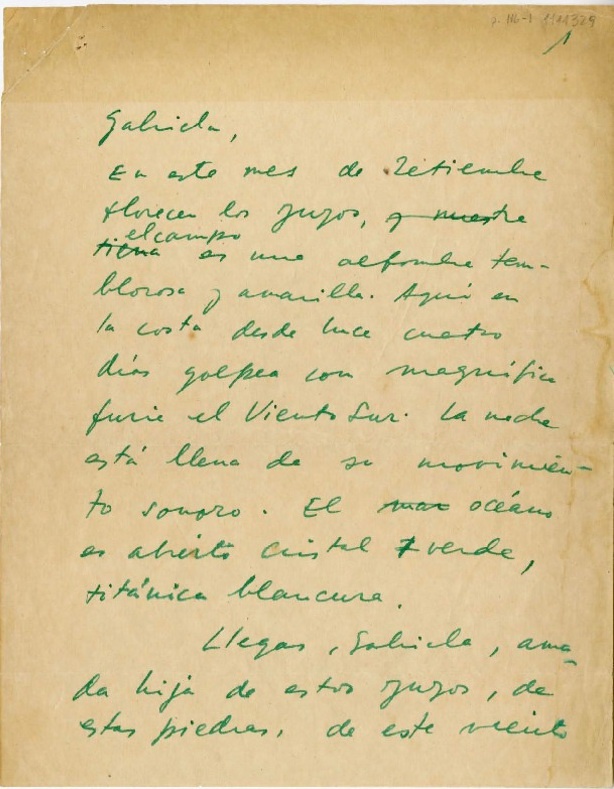 1
Gabriela,
En este mes de Setiembre
florecen los yuyos, y nuestra
el campo
tierra es una alfombra tem-
blorosa y amarilla. Aquí en
la costa desde hace cuatro
días golpea con magnífica
furia el Viento Sur. La noche
está llena de su movimien-
to sonoro. El mar océano
es abierto cristal y verde,
titánica blancura.
Llegas, Gabriela, ama-
da hija de estos yuyos, de
estas piedras, de este viento